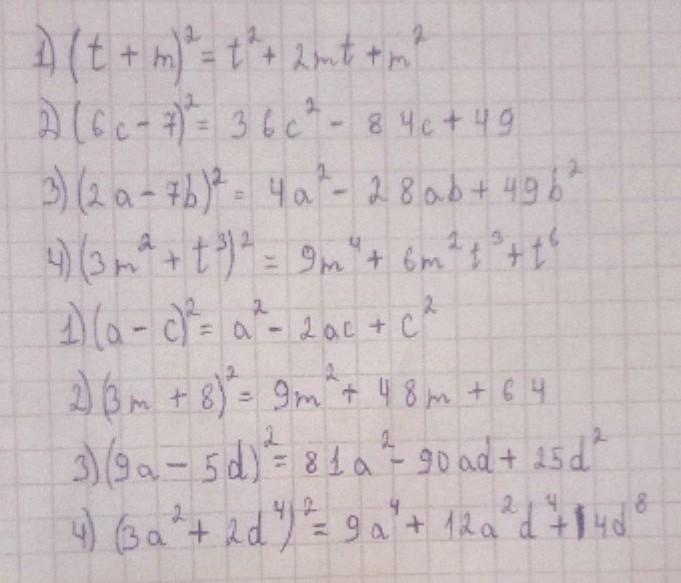 1) (t + m)² = t² + 2mt + m²
2) (6c - 7)² = 36c² - 84c + 49
3) (2a - 7b)² = 4a² - 28ab + 49b²
4) (3m² + t³)² = 9m⁴ + 6m²t³ + t⁶
1) (a - c)² = a² - 2ac + c²
2) (3m + 8)² = 9m² + 48m + 64
3) (9a - 5d)² = 81a² - 90ad + 25d²
4) (3a² + 2d⁴)² = 9a⁴ + 12a²d⁴ + 4d⁸